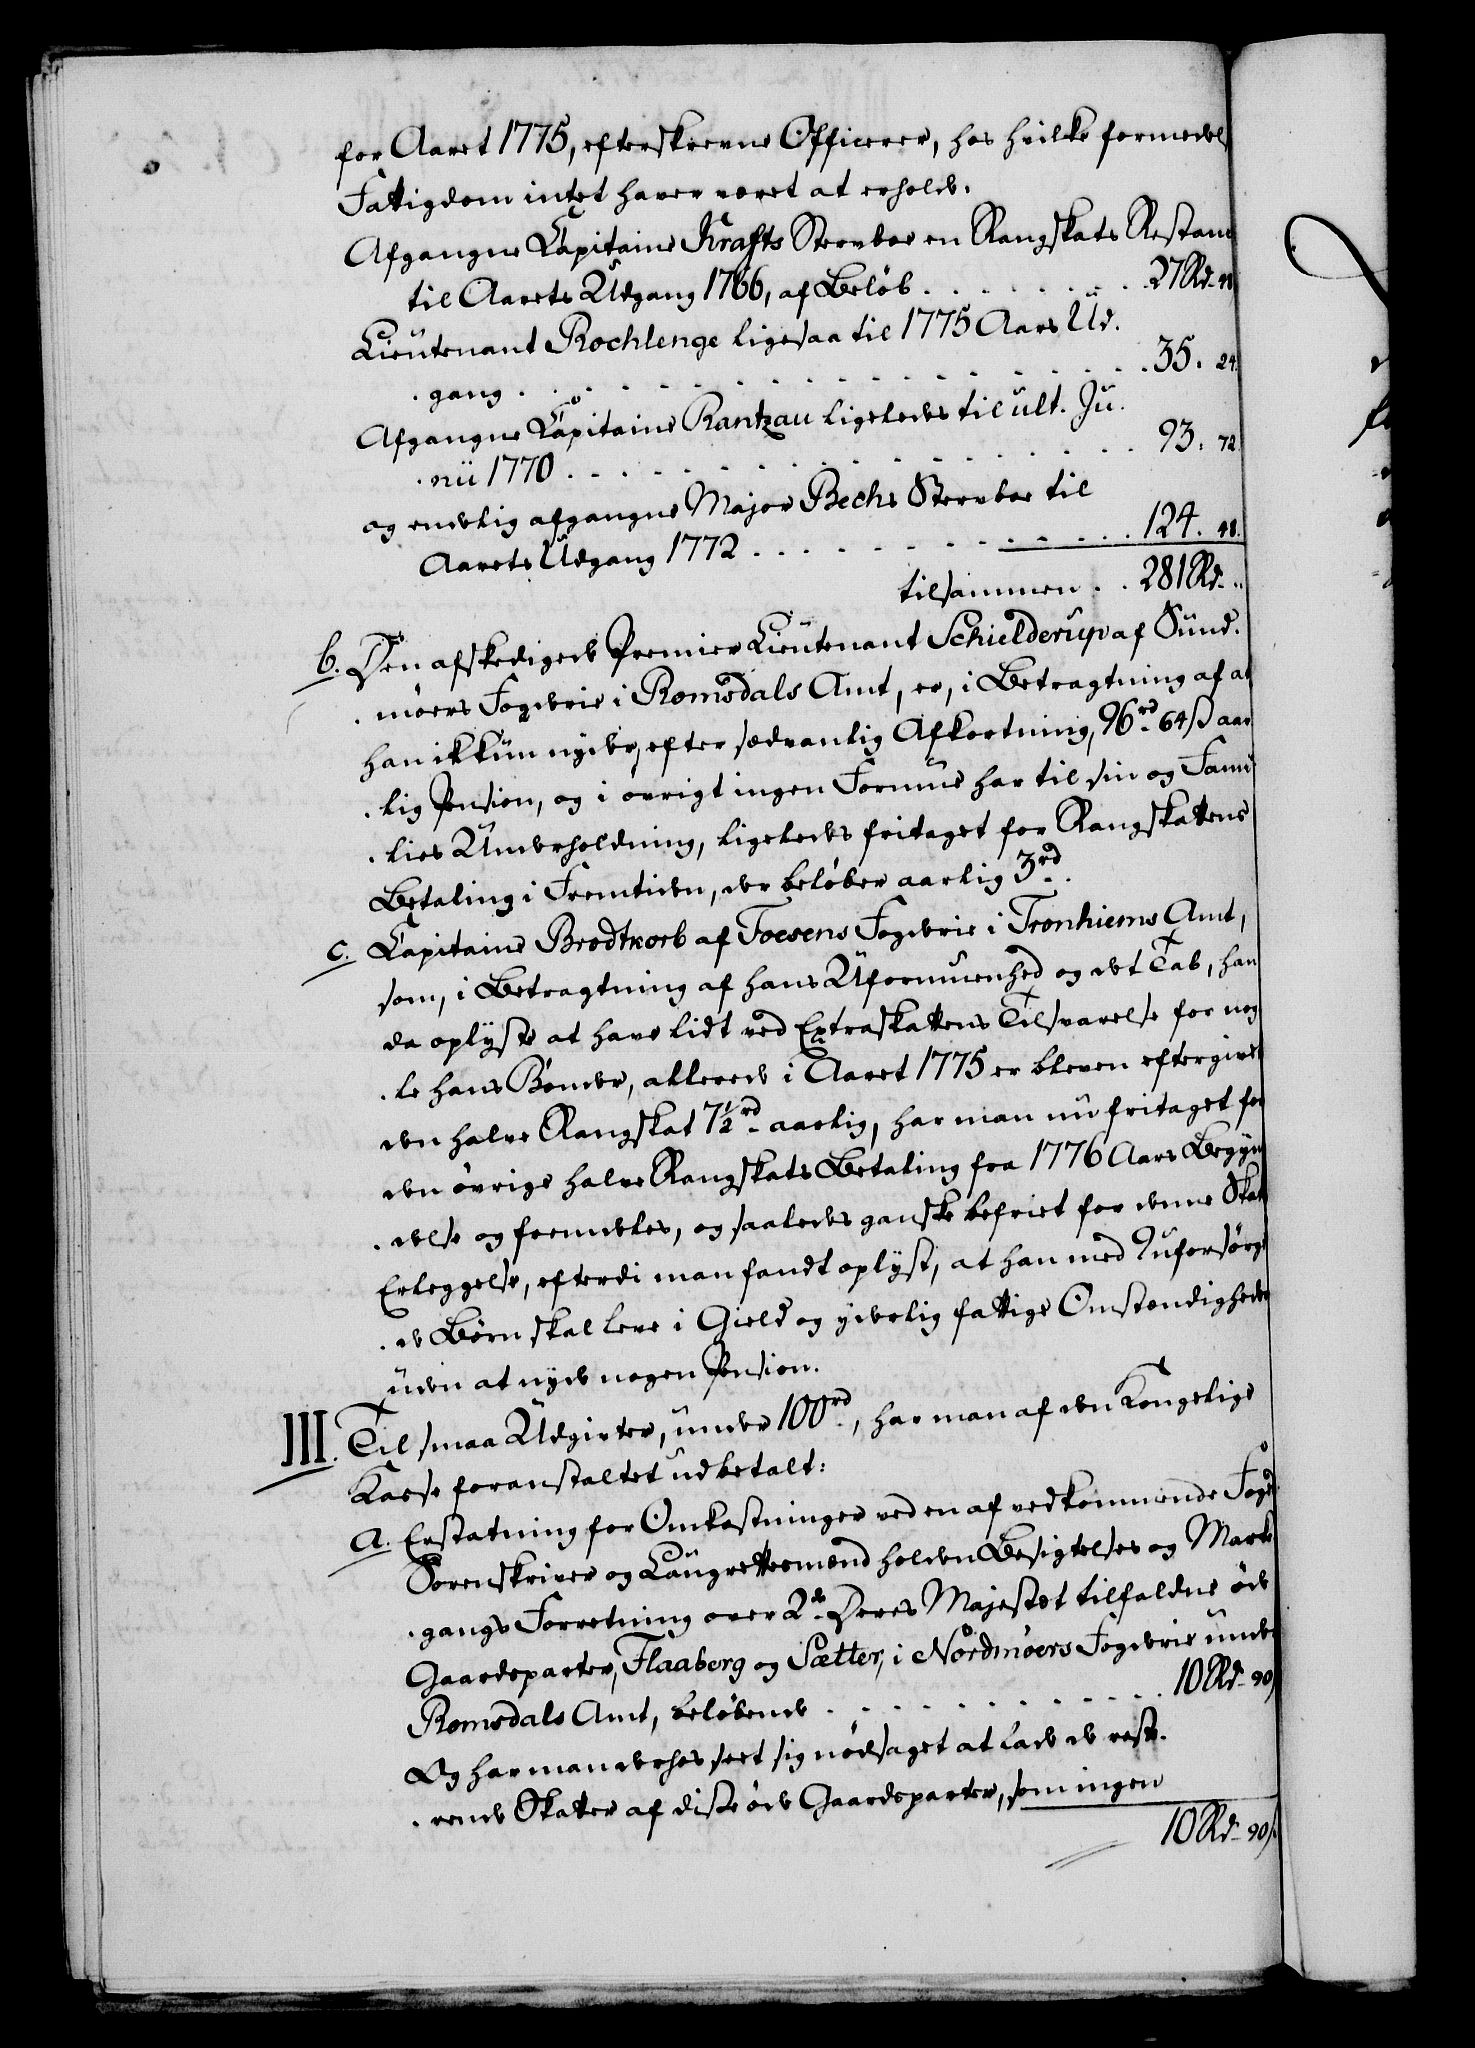 for Aaret 1775, efterskrevne Officerer, hos hvilke formedels
Fattigdom intet haver været at erholde.
Afgangne Capitaine Krafts Sterboe en Rangskats Restance
til Aarets Udgang 1766, af Beløb . . . . . . . . 27 Rd. 48
Lieutenant Rochlenge ligesaa til 1775 Aars Ud-
gang . . . . . . . . . . . . . . . . 35. 24.
Afgangne Capitaine Rantzau ligeledes til ult. Ju-
nii 1770 . . . . . . . . . . . . . . . 93. 72.
og endelig afgangne Major Bechs Sterboe til
Aarets Udgang 1772 . . . . . . . . . . . 124. 48.
tilsammen . . 281 Rd. "
b. Den afskedigede Premier Lieutenant Schielderup af Sund-
møers Fogderie i Romsdals Amt, er, i Betragtning af at
han ikkun nyder, efter sædvanlig Afkortning, 96 rd. 64 ß aar-
lig Pension, og i øvrigt ingen Formue har til sin og Fami-
lies Underholdning, ligeledes fritaget for Rangskattens
Betaling i Fremtiden, der beløber aarlig 3 rd.
c. Capitaine Brodtkorb af Foesens Fogderie i Tronhiems Amt,
som, i Betragtning af hans Uformuenhed og det Tab, han
da oplyste at have lidt ved Extraskattens Tilsvarelse for nog-
le hans Bønder, allerede i Aaret 1775 er bleven eftergivet
den halve Rangskat 7½ rd. aarlig, har man nu fritaget for
den øvrige halve Rangskats Betaling fra 1776 Aars Begyn-
delse og fremdeles, og saaledes ganske befriet for denne Skats
Erleggelse, efterdi man fandt oplyst, at han med 9 uforsørge-
de Børn skal leve i Gield og yderlig fattige Omstændigheder
uden at nyde nogen Pension.
III. Til smaa Udgivter, under 100 rd., har man af den Kongelige
Kasse foranstaltet udbetalt:
a. Erstatning for Omkostninger ved en af vedkommende Foged
Sorenskriver og Laugrettesmænd holden Besigtelses og Marke-
gangs Forretning over 2de Deres Majestet tilfaldne øde
Gaardeparter, Flaaberg og Sætter, i Nordmøers Fogderie under
Romsdals Amt, beløbende . . . . . . . . . . . . 10 Rd. 90 ß
Og har man derhos seet sig nødsaget at lade de reste-
rende Skatter af disse øde Gaardeparter, som ingen
10 Rd. 90 ß.